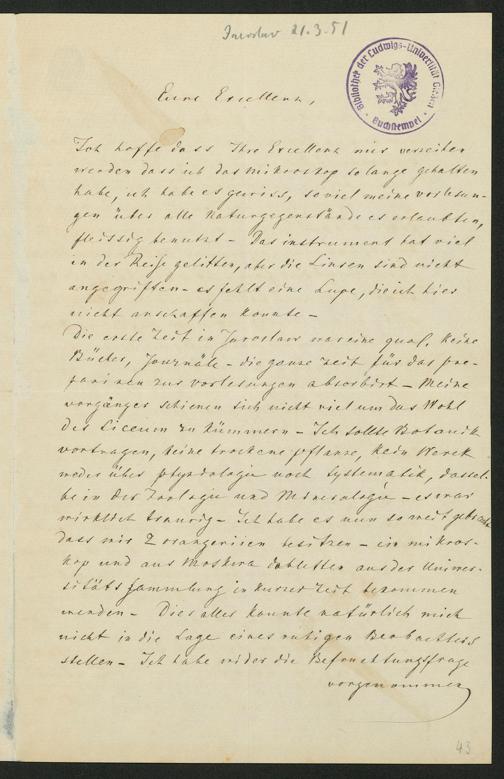 Jaroslav 21.3.51
Bibliothek der Ludwigs-Universität Giessen
Buchstempel
Eure Excellenz,
Ich hoffe dass Ihre Excellenz mir verzeihen
werden dass ich das Mikroskop so lange gehalten
habe, ich habe es gewiss, soviel meine Vorlesun-
gen über alle Naturgegenstände es erlaubten,
fleissig benutzt – Das instrument hat viel
in der Reise gelitten, aber die Linsen sind nicht
angegriffen – es fehlt eine Lupe, die ich hier
nicht anschaffen konnte –
Die erste Zeit in Jaroslav war eine qual, keine
Bücher, Journäle – die ganze Zeit für das pre-
pariren zur vorlesungen absorbirt – Meine
vorgänger schienen sich nicht viel um das Wohl
des Liceum zu kümmern – Ich sollte Botanik
vortragen, keine trockene pflanze, kein Werck
weder über phytologie noch systematik, dassel-
be in der Zoologie und Mineralogie – es war
wirklich traurig – Ich habe es nun so weit gebracht
dass wir 2 orangeriien besitzen – ein mikros-
kop und aus Moskwa dubletten aus der Univer-
sitäts Sammlung in kurzer Zeit bekommen
werden – Dies alles konnte natürlich mich
nicht in die Lage eines ruhigen Beobachters
stellen – Ich habe wider die Befruchtungsfrage
vorgenommen
43